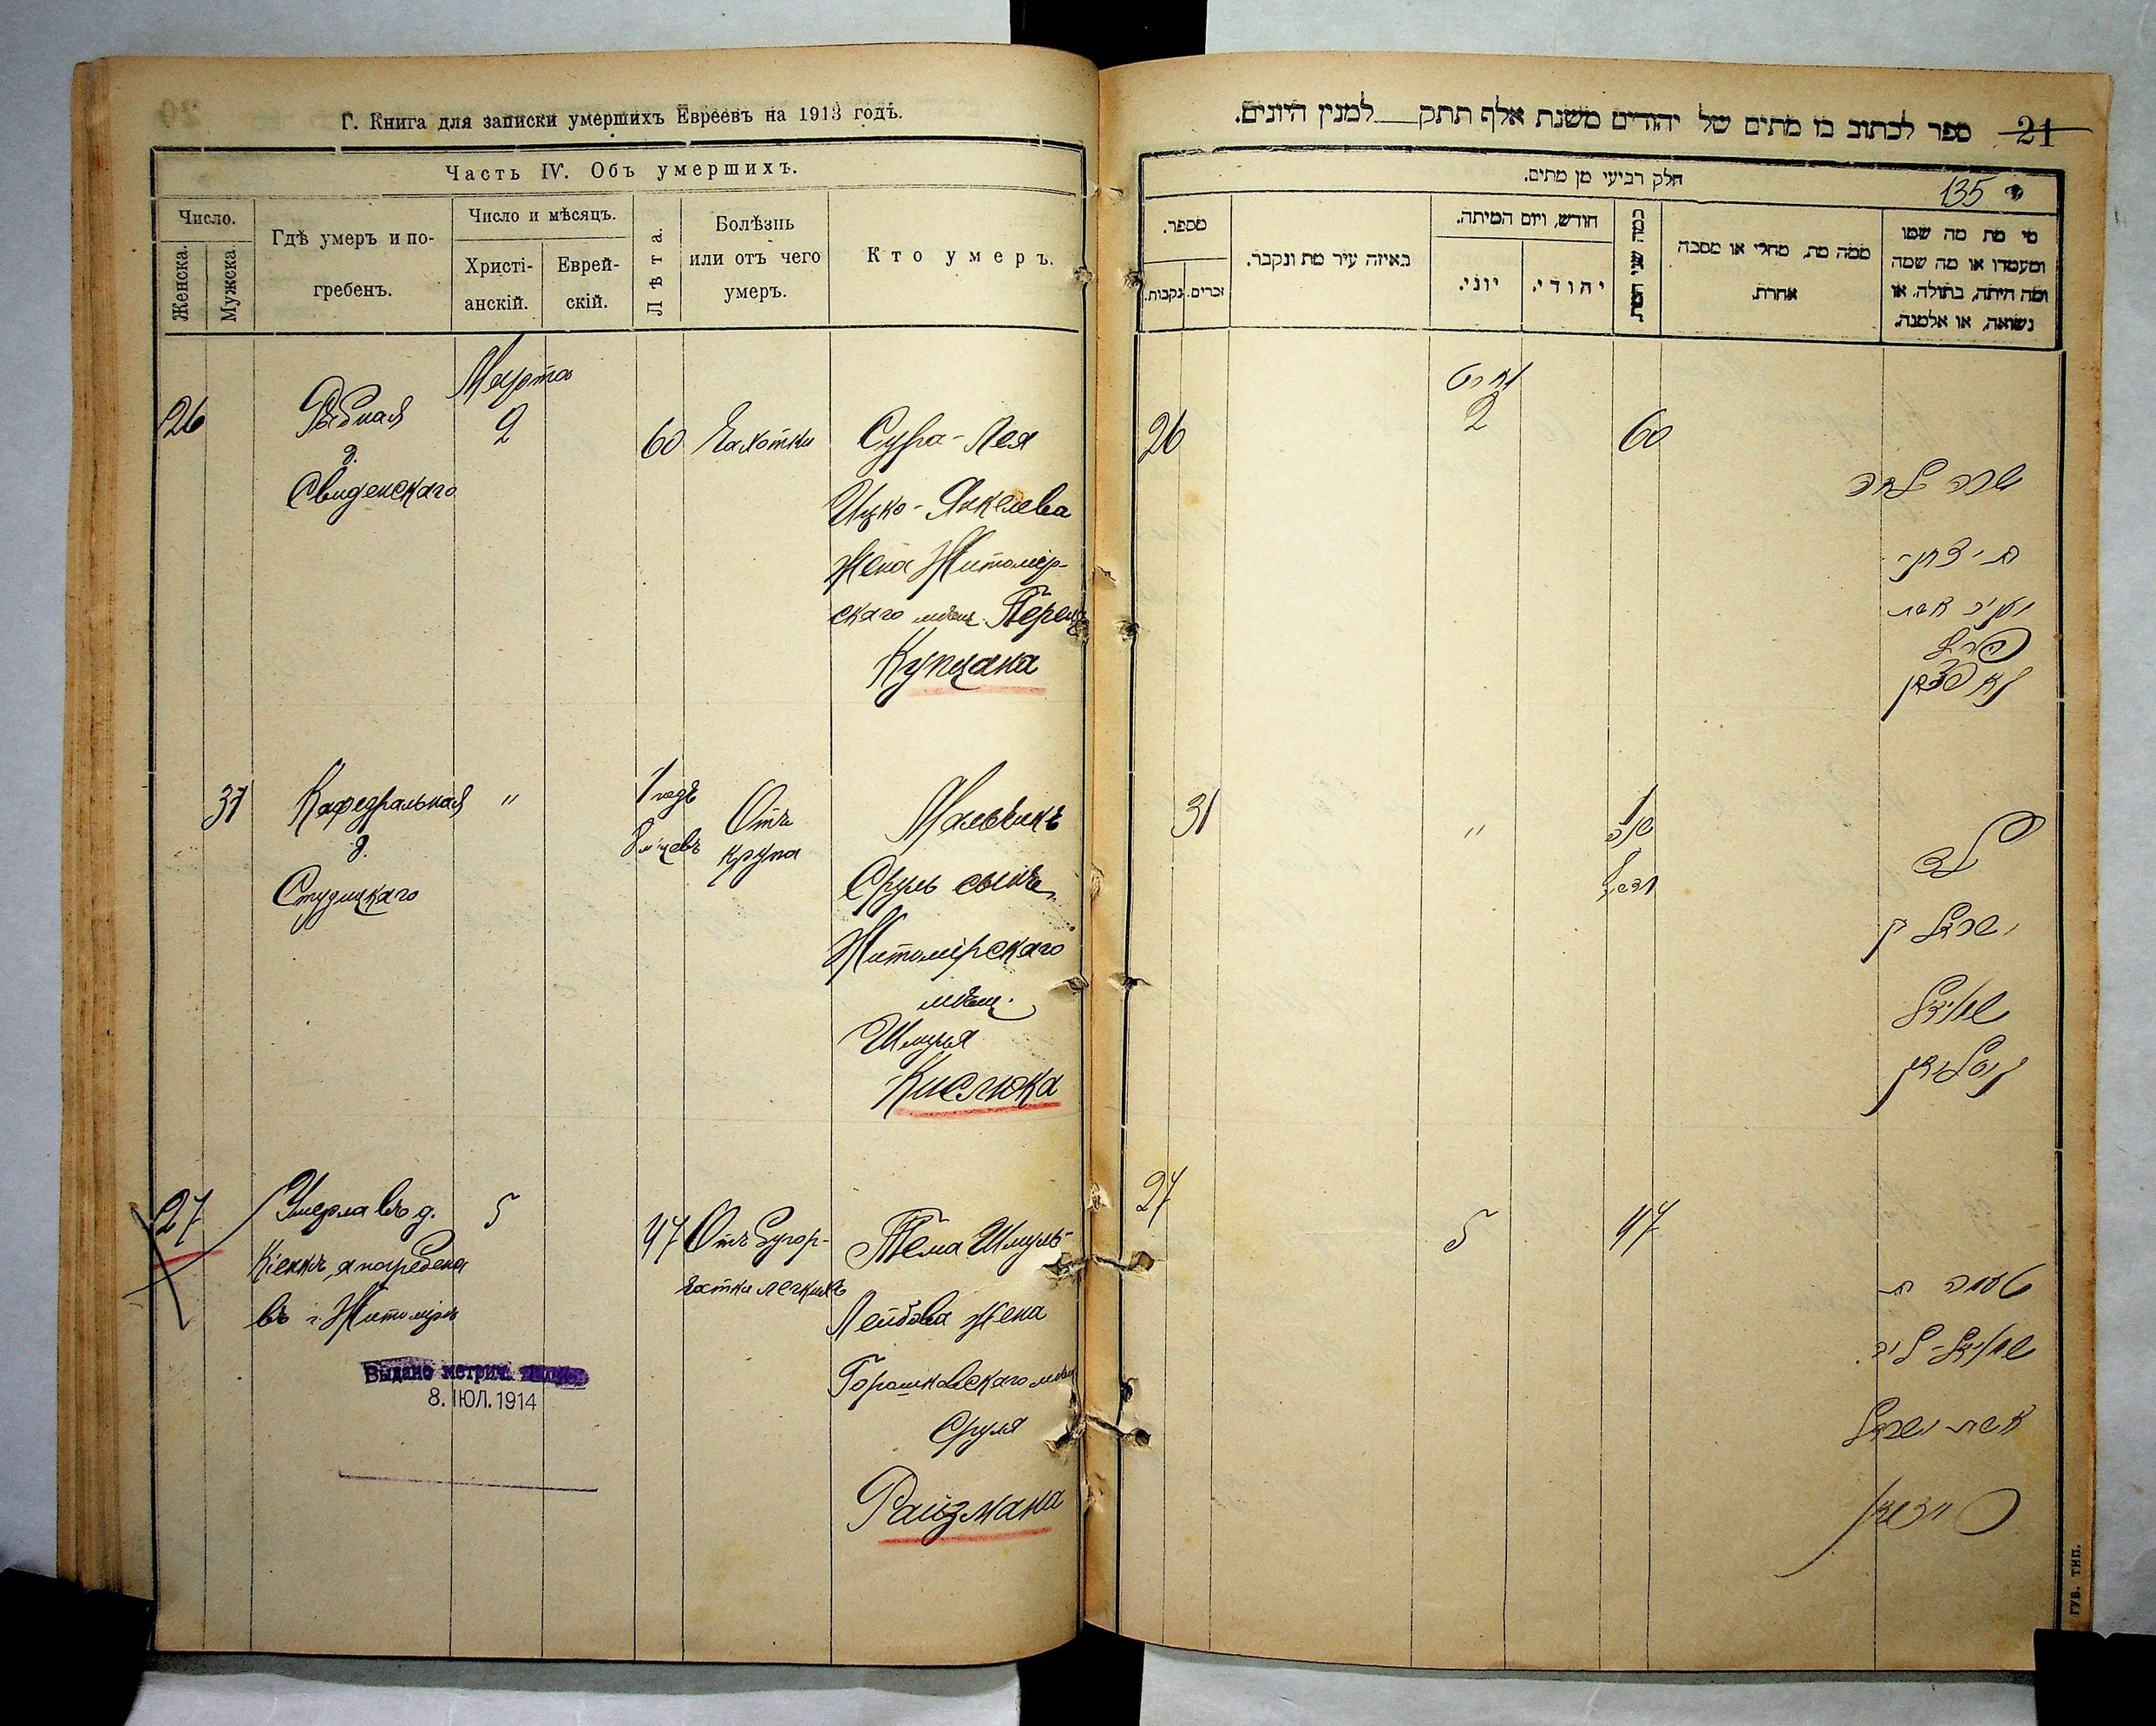 Г. Книга для записки умершихъ Евреевъ на 1913 годъ.
Часть IV. Объ умершихъ.
Число.
Женска.
Мужска
Гдѣ умеръ и по-
гребенъ.
Число и мѣсяцъ.
Христі-
анскій.
Еврей-
скій.
Лѣта.
Болѣзнь
или отъ чего
умеръ.
Кто умеръ.
Марта
26
Рыбная
д.
Свиденскаго
2
60
Чахотки
Сура-Лея
Ицко-Янкелева
жена Житомір-
скаго мѣщ. Переца
Купцана
31
Кафедральная
д.
Студицкаго
"
1 годъ
8 м-цевъ
Отъ
крупа
Мальчикъ
Сруль сынъ
Житомірскаго
мѣщ.
Шмуля
Кислюка
27
Умерла въ д.
а погребена
въ г. Житомірѣ
5
47
Отъ бугор-
чатки легкихъ
Тема Шмуль-
Лейбова жена
Горошковскаго мѣщ
Сруля
Райзмана
Выдано метрич.
8. ІЮЛ. 1914
ספר לכתוב בו מתים של יהודים משנת אלף תתק למנין היונים.
21
חלק רביעי מן מתים.
135
מספר.
נקבות.
זכרים.
באיזה עיר מת ונקבר.
חודש, ויום המיתה.
יוני.
יהודי.
כמה שני המת
ממה מת, מחלי או מסבה
אחרת.
מי מת מה שמו
ומעמדו או מה שמה
ומה היתה, בתולה, או
נשואה, או אלמנה.
מארט
26
2
60
שרה לאה
יעקב אשת
פרץ
31
"
1
שנה
ילד
ישראל
שמואל
27
5
47
טעמה בת
שמואל-ליב
אשת ישראל
רייזמאן
ГУБ. ТИП.